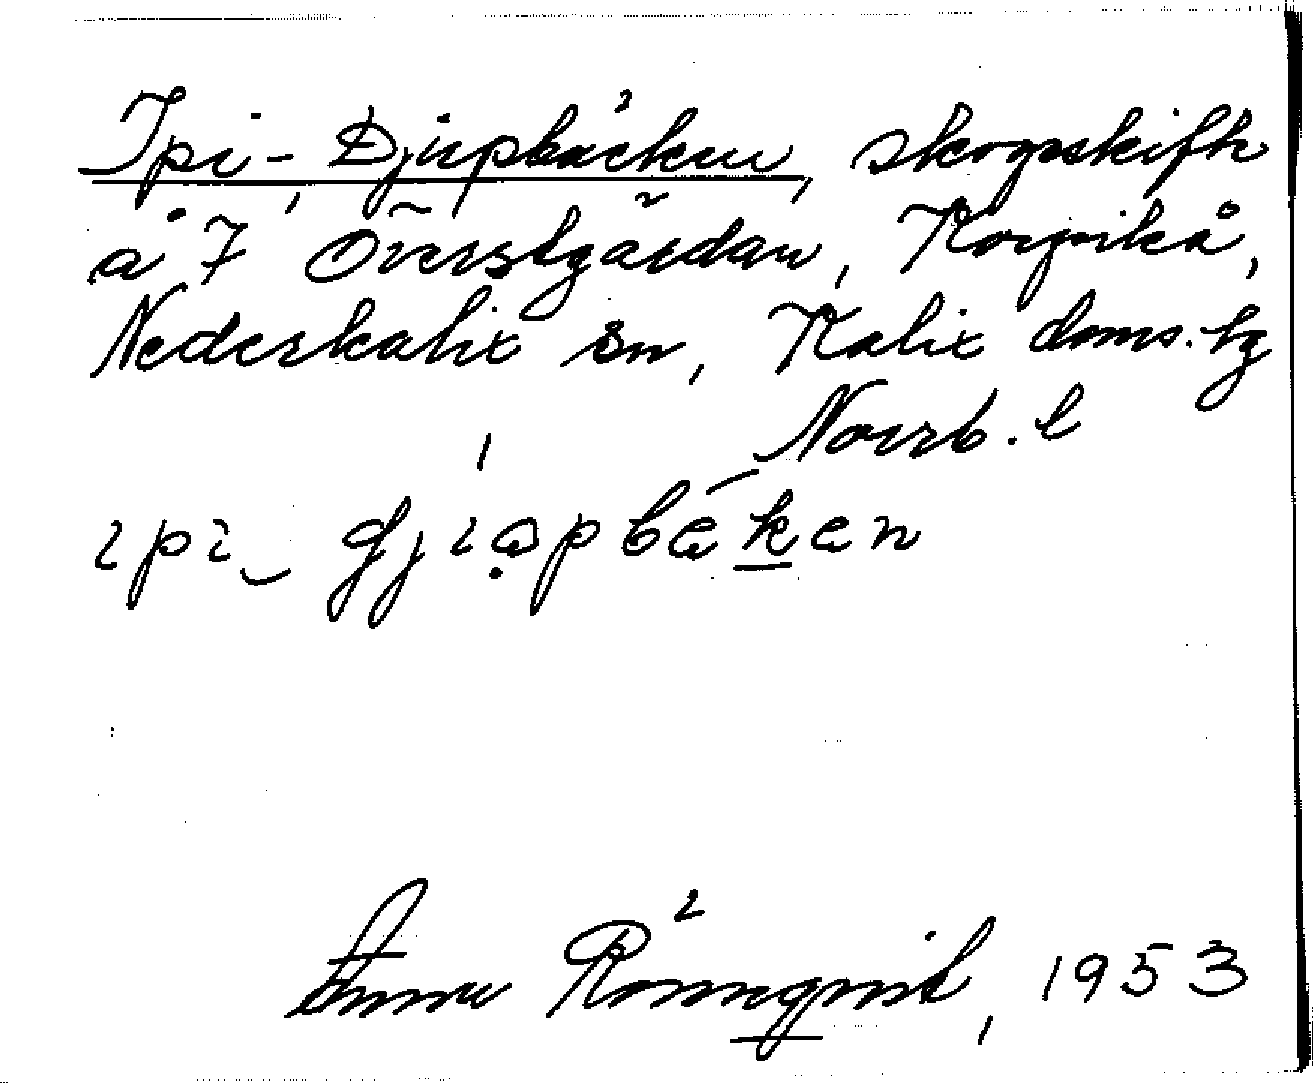 Ipi-Djupbäcken, skogsskifte
å 7 Överstgården, Korpikå,
Nederkalix sn, Kalix doms. tg
Norrb. l
ipi-djiopbäken
Rönnqvist, 1953